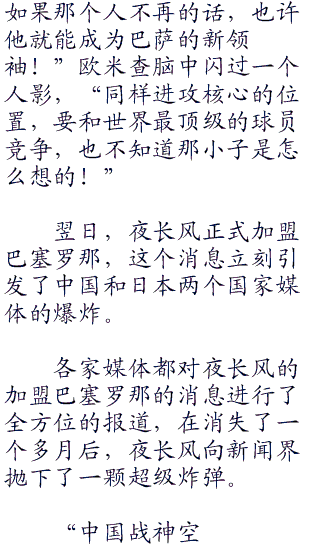 如果那个人不再的话，也许
他就能成为巴萨的新领
袖！”欧米查脑中闪过一个
人影，“同样进攻核心的位
置，要和世界最顶级的球员
竞争，也不知道那小子是怎
么想的！”
翌日，夜长风正式加盟
巴塞罗那，这个消息立刻引
发了中国和日本两个国家媒
体的爆炸。
各家媒体都对夜长风的
加盟巴塞罗那的消息进行了
全方位的报道，在消失了一
个多月后，夜长风向新闻界
抛下了一颗超级炸弹。
“中国战神空